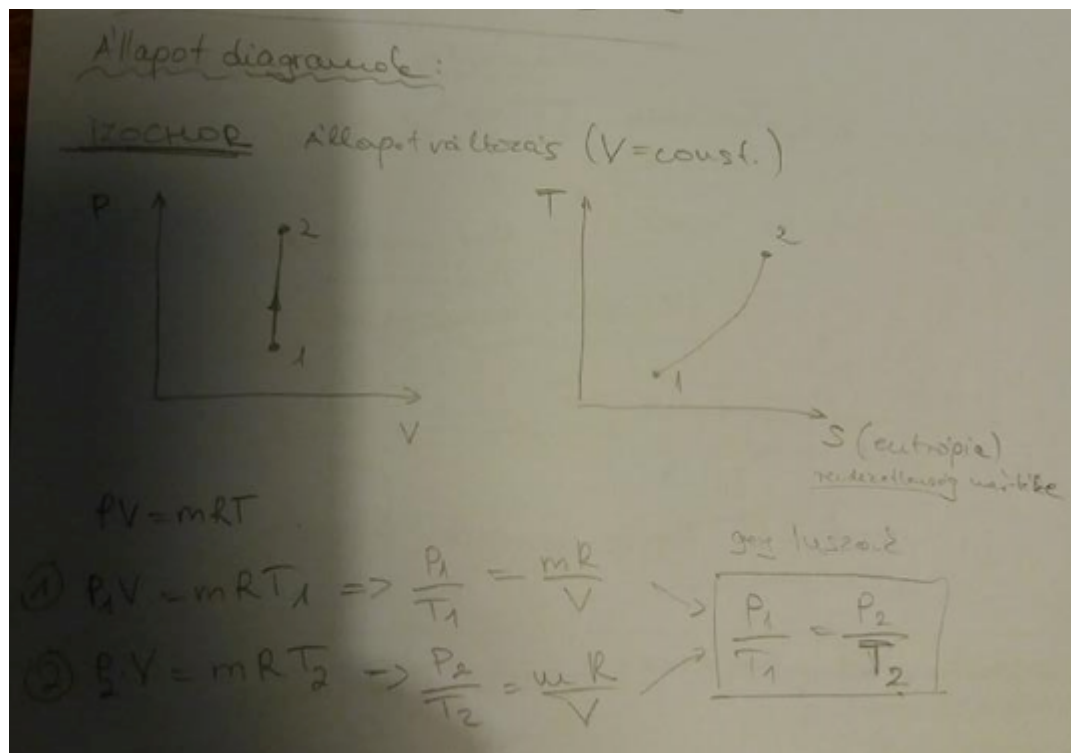 Állapot diagramok:
IZOCHOR Állapotváltozás (V=const.)
P
2
1
V
T
2
1
S (entrópia)
rendezetlenség mértéke
PV=mRT
① P₁V=mRT₁ => P₁/T₁ = mR/V
② P₂·V=mRT₂ -> P₂/T₂ = mR/V
P₁/T₁ = P₂/T₂